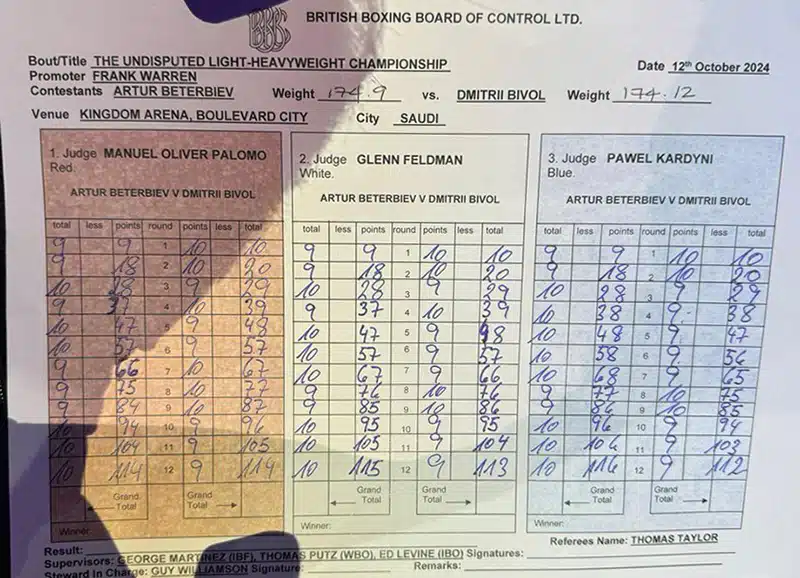 BBBC
BRITISH BOXING BOARD OF CONTROL LTD.
Bout/Title THE UNDISPUTED LIGHT-HEAVYWEIGHT CHAMPIONSHIP Date 12th October 2024
Promoter FRANK WARREN
Contestants ARTUR BETERBIEV Weight 174.9 vs. DMITRII BIVOL Weight 174.12
Venue KINGDOM ARENA, BOULEVARD CITY City SAUDI
1. Judge MANUEL OLIVER PALOMO
Red.
ARTUR BETERBIEV V DMITRII BIVOL
total less points round points less total
9 9 1 10 10
9 18 2 10 20
10 28 3 9 29
9 37 4 10 39
10 47 5 9 48
10 57 6 9 57
9 66 7 10 67
9 75 8 10 77
9 84 9 10 87
10 94 10 9 96
10 104 11 9 105
10 114 12 9 114
Grand Total Grand Total
Winner:
2. Judge GLENN FELDMAN
White.
ARTUR BETERBIEV V DMITRII BIVOL
total less points round points less total
9 9 1 10 10
9 18 2 10 20
10 28 3 9 29
9 37 4 10 39
10 47 5 9 48
10 57 6 9 57
10 67 7 9 66
9 76 8 10 76
9 85 9 10 86
10 95 10 9 95
10 105 11 9 104
10 115 12 9 113
Grand Total Grand Total
Winner:
3. Judge PAWEL KARDYNI
Blue.
ARTUR BETERBIEV V DMITRII BIVOL
total less points round points less total
9 9 1 10 10
9 18 2 10 20
10 28 3 9 29
10 38 4 9 38
10 48 5 9 47
10 58 6 9 56
10 68 7 9 65
9 77 8 10 75
9 86 9 10 85
10 96 10 9 94
10 106 11 9 103
10 116 12 9 112
Grand Total Grand Total
Winner:
Referees Name: THOMAS TAYLOR
Result:
Supervisors: GEORGE MARTINEZ (IBF), THOMAS PUTZ (WBO), ED LEVINE (IBO) Signatures:
Steward In Charge: GUY WILLIAMSON Signature: Remarks: